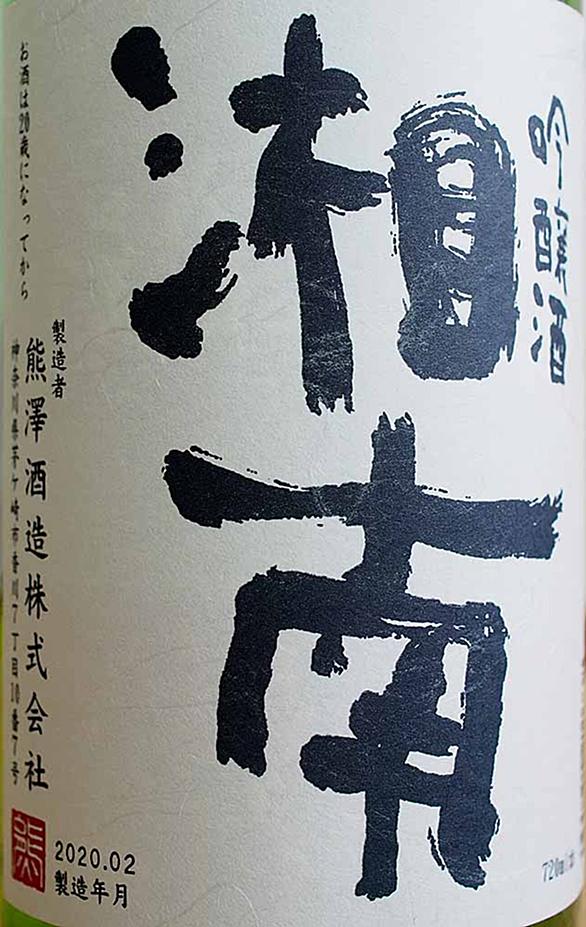 吟醸酒
湘南
お酒は20歳になってから
製造者
熊澤酒造株式会社
神奈川県茅ケ崎市香川7丁目10番7号
熊
2020.02
製造年月
720ml